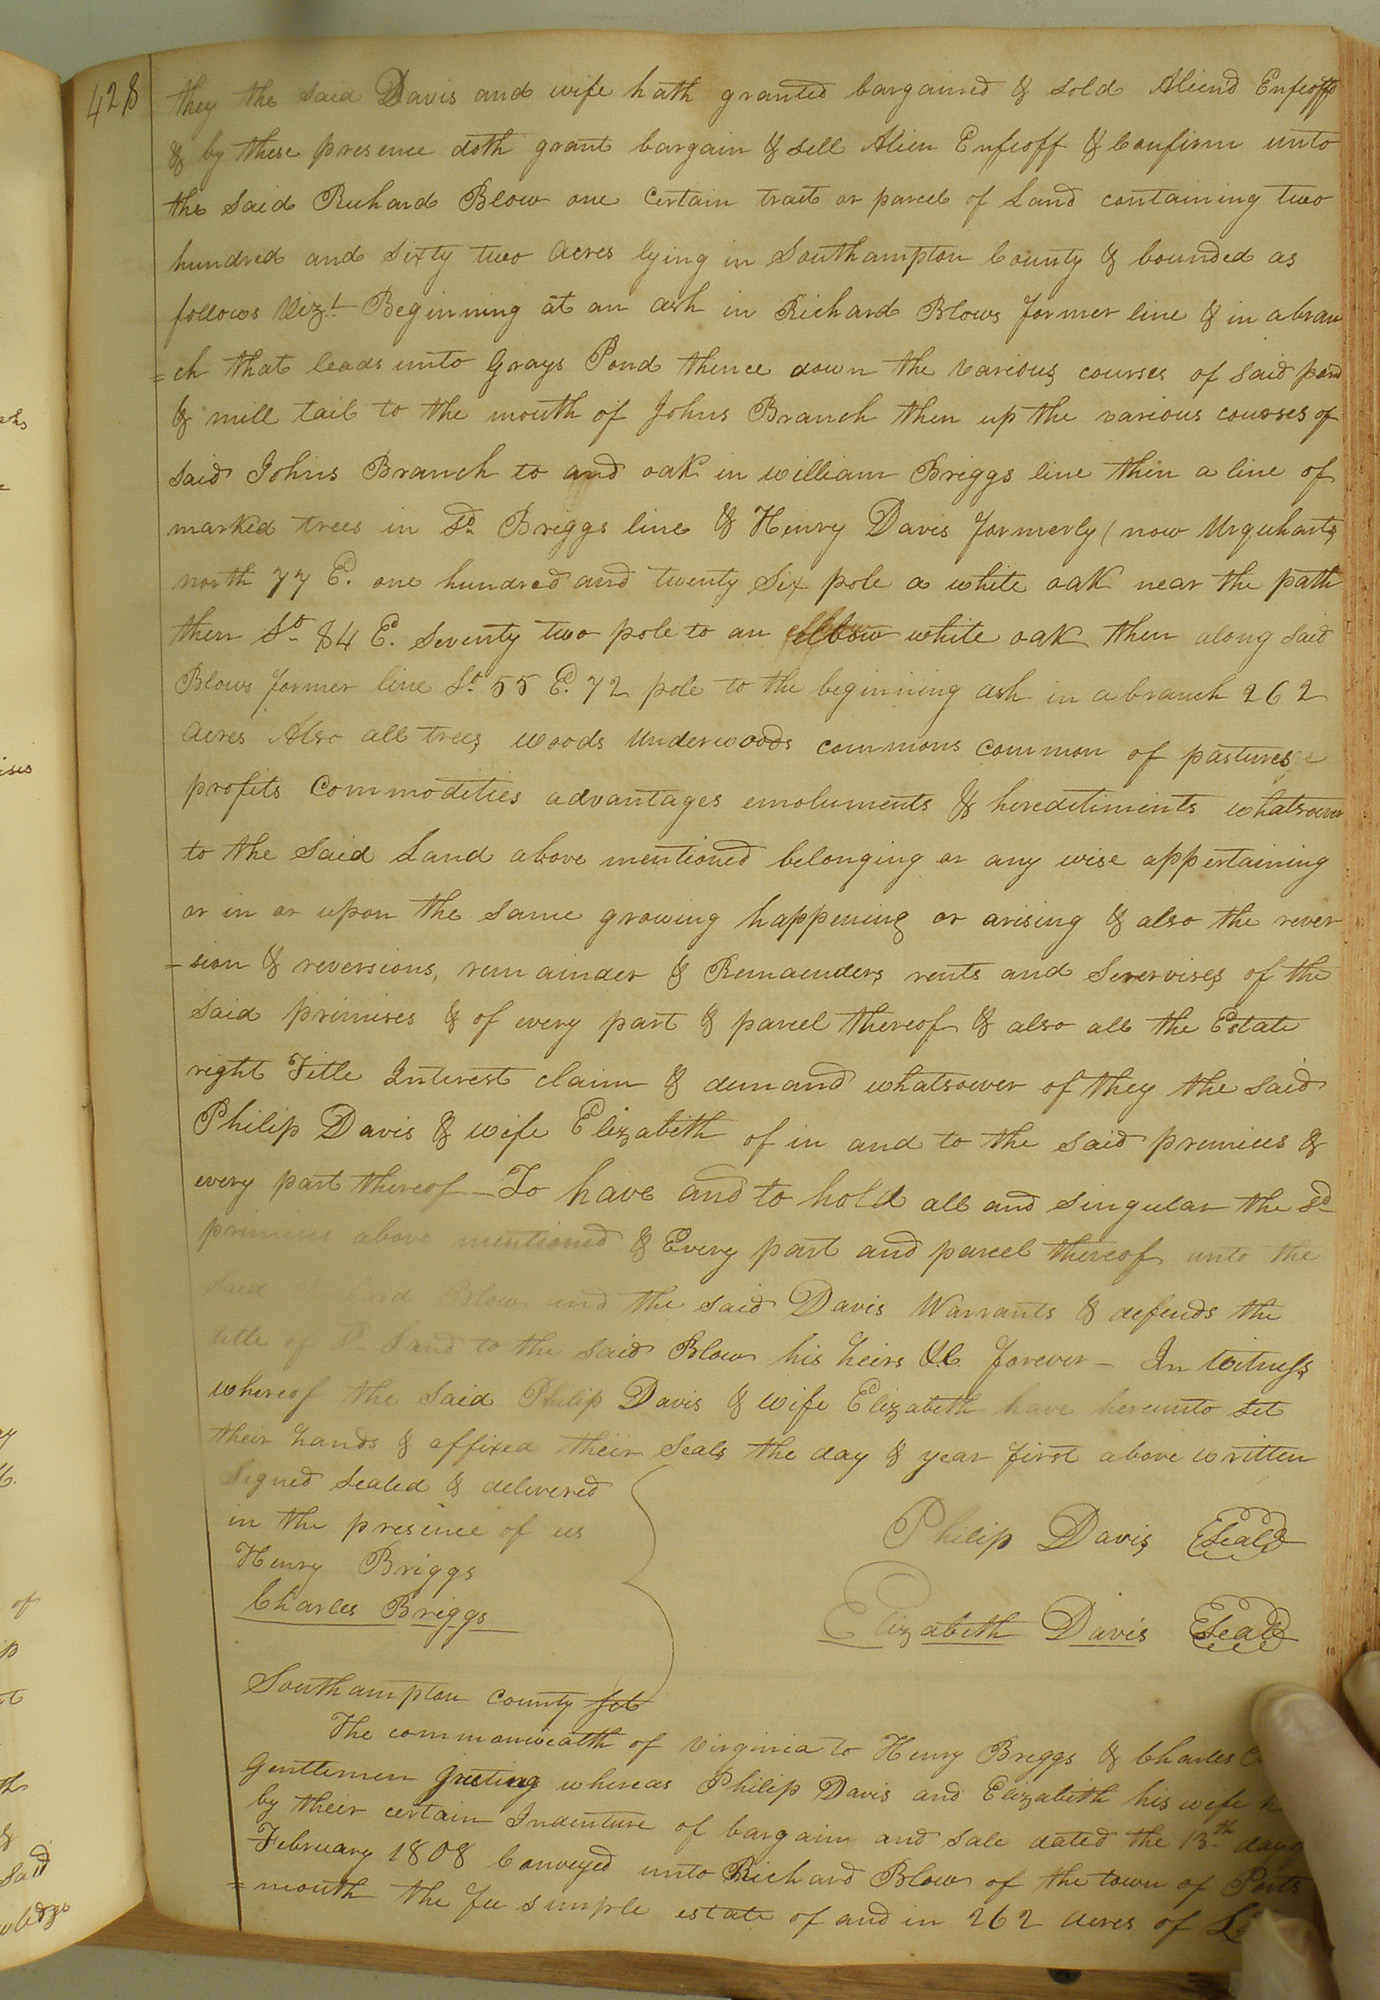 428
they the said Davis and wife hath granted bargained & sold Aliend Enfeoff
& by these presence doth grant bargain & sell Alien Enfeoff & Confirm unto
the said Richard Blow one certain tract or parcel of Land containing two
hundred and sixty two acres lying in Southampton County & bounded as
follows Vizt Beginning at an ash in Richard Blows former line & in a bran
=ch that leads unto Grays Pond thence down the various courses of said pond
& mill tail to the mouth of Johns Branch then up the various courses of
said Johns Branch to and oak in william Briggs line then a line of
marked trees in sd Briggs line & Henry Davis formerly (now Urquharts
north 77 E. one hundred and twenty six pole a white oak near the path
then So 84 E. Seventy two pole to an elbow white oak then along said
Blows former line So 55 E. 72 pole to the beginning ash in a branch 262
acres Also all trees woods underwoods commons common of pastures
profits Commodities advantages emoluments & hereditiments whatsoever
to the said Land above mentioned belonging or any wise appertaining
or in or upon the same growing happening or arising & also the rever
=sion & reversions, remainder & Remaenders rents and Serervises of the
said primises & of every part & parcel thereof & also all the Estate
right Title Interest claim & demand whatsoever of they the said
Philip Davis & wife Elizabeth of in and to the said premices &
every part thereof – To have and to hold all and singular the sd
primises above mentioned & Every part and parcel thereof unto the
said Richard Blow and the said Davis Warrants & defends the
title of sd Land to the said Blow his heirs &c forever – In Witness
whereof the said Philip Davis & wife Elizabeth have hereunto set
their hands & affixed their seals the day & year first above written
Signed sealed & delivered
in the presence of us
Henry Briggs
Charles Briggs
Philip Davis Seal
Elizabeth Davis Seal
Southampton County Sct
The commonwealth of Virginia to Henry Briggs & Charles
Gentlemen Greeting whereas Philip Davis and Elizabeth his wife
by their certain Indenture of bargain and sale dated the 13th day
February 1808 Conveyed unto Richard Blow of the town of Ports
=mouth the fee simple estate of and in 262 acres of